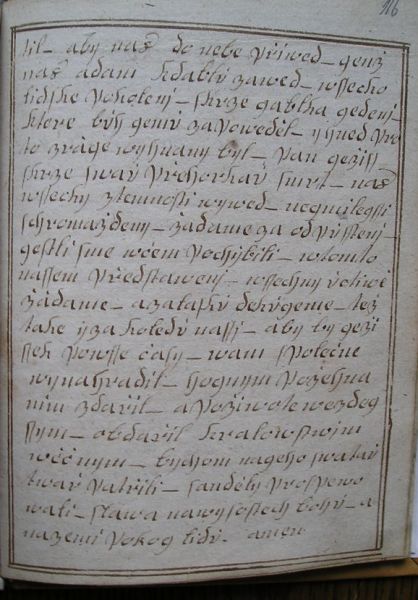 116
til_ aby nas do nebe přiwed_ genž
nas adam kdablu zawed_ wssecko
lidske pokoleni_ skrze gablka gedeni_
ktere bylo gemu zapowedel_ y hned pro
to z rage wyhnany byl_ pan gežiss_
skrze swau přehorkau smrt_ nas
wssechy z temnosti wywed_ neymilegssi
schromaždeny_ žadame za odpusteni_
gestli sme wčem pochybili_ w tomto
nassem předstaweni_ wssechny
žadame_ a za lasku dekugeme_ též
take y za koledu nassy_ aby by geži
ssek po wsse časy_ wam spolecne
wynahradil_ hognym požehna
nim zdařil_ a po životě wezdeg
ssym_ obdařil kralowstwim
wěčnym_ bychom na geho swatau
twař patřili_ s andely prospewo
wali_ slawa na wysostech bohu_ a
na zemi pokog lidu_ amen